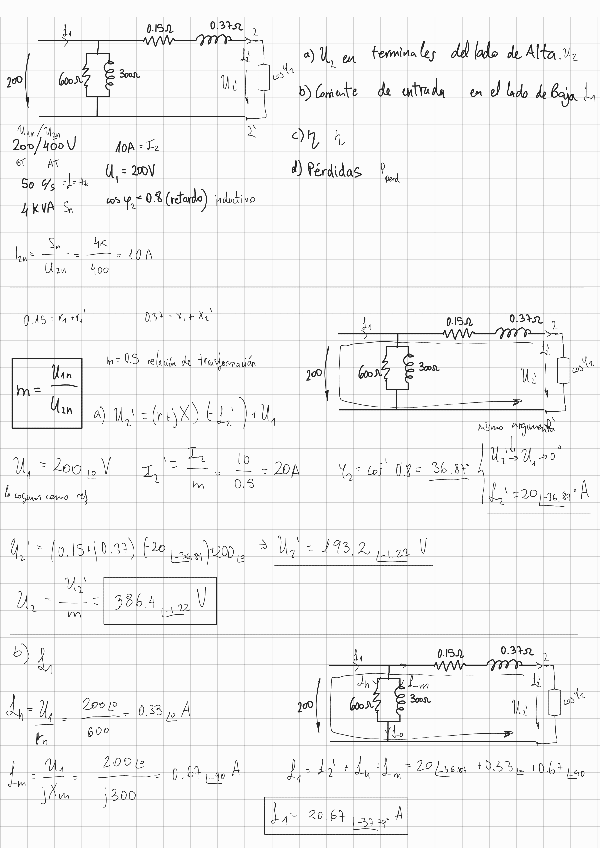 I₁ 0.15Ω 0.37Ω 2
200 600Ω 300Ω U₂' I₂' cosφ₂
2'
a) U₂ en terminales del lado de Alta. U₂
b) Corriente de entrada en el lado de Baja I₁
c) η η
d) Pérdidas P_perd
U₁ₙ/U₂ₙ
200/400V 10A = I₂
BT AT U₁ = 200V
50 c/s = f = f₂
cos φ₂ = 0.8 (retardo) inductivo
4 KVA Sₙ
I₂ₙ = Sₙ/U₂ₙ = 4K/400 = 10 A
0.15 = r₁ + r₂' 0.37 = x₁ + x₂'
m = U₁ₙ/U₂ₙ
m = 0.5 relación de transformación
I₁ 0.15Ω 0.37Ω 2
200 600Ω 300Ω U₂' I₂' cosφ₂
2'
a) U₂' = (r+jX) (-I₂') + U₁
mismo argumento
U₁ = 200 |0 V
lo cogemos como ref
I₂' = I₂/m = 10/0.5 = 20A
φ₂ = cos⁻¹ 0.8 = 36.87°
U₂' → U₁ → 0°
I₂' = 20 |-36.87° A
U₂' = (0.15+j0.37) (-20 |-36.87) + 200 |0 ⇒ U₂' = 193.2 |-1.22 V
U₂ = U₂'/m = 386.4 |-1.22 V
b) I₁
I₁ 0.15Ω 0.37Ω 2
Iₕ Iₘ
200 600Ω 300Ω U₂' I₂' cosφ₂
I₀ 2'
Iₕ = U₁/rₕ = 200 |0/600 = 0.33 |0 A
Iₘ = U₁/jXₘ = 200 |0/j300 = 0.67 |-90 A
I₁ = I₂' + Iₕ + Iₘ = 20 |-36.87 + 0.33 |0 + 0.67 |-90
I₁ = 20.67 |-37.78° A